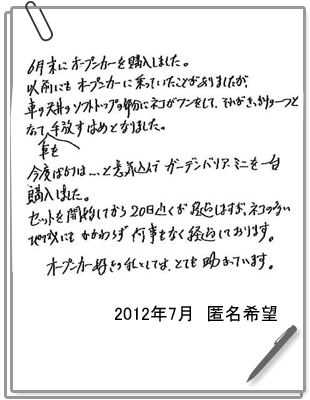 6月末にオープンカーを購入しました。
以前にもオープンカーに乗っていたことがありましたが、
車の天井のソフトトップの部分にネコがフンをして、それがきっかけの一つと
なって車を手放すはめとなりました。
今度ばかりは…と意気込んでガーデンバリア ミニを一台
購入しました。
セットを開始してから20日近くが経過しますが、ネコの多い
地域にもかかわらず何事もなく経過しております。
オープンカー好きの私としては、とても助かっています。
2012年7月 匿名希望